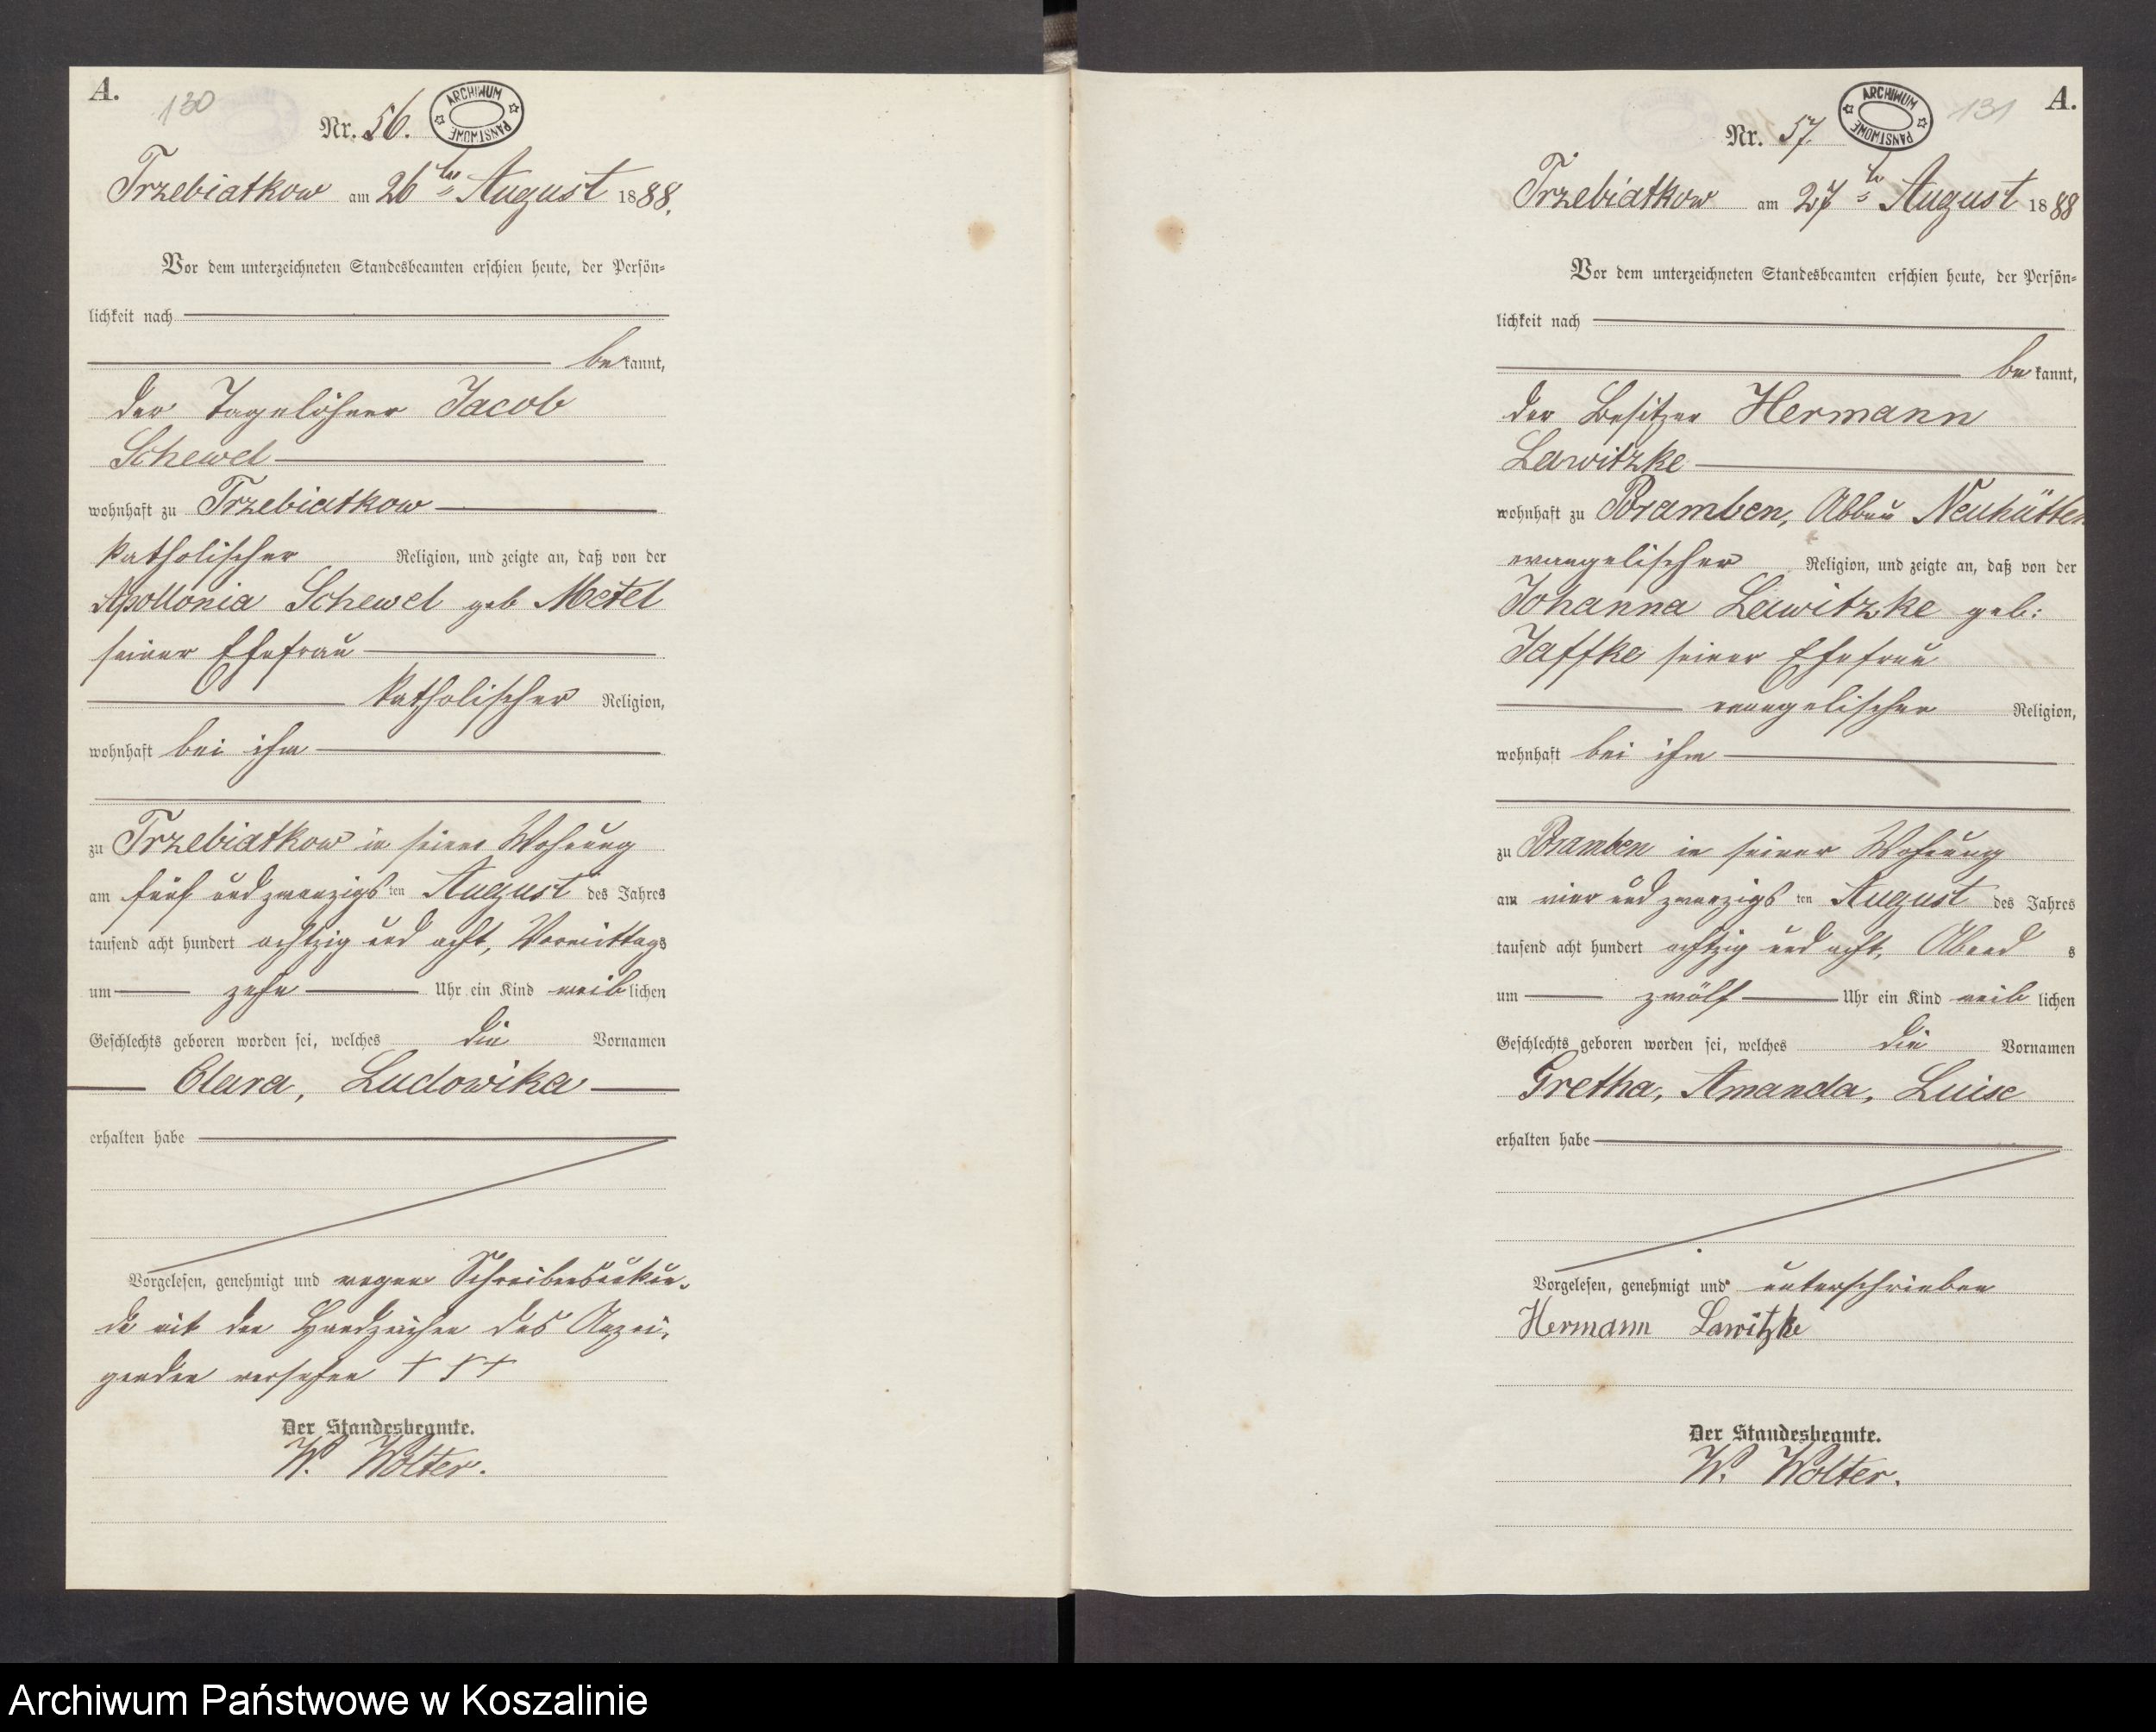 A.
130
Nr. 56.
ARCHIWUM PAŃSTWOWE
Trzebiatkow am 26ten August 1888.
Vor dem unterzeichneten Standesbeamten erschien heute, der Persön-
lichkeit nach
bekannt,
der Tagelöhner Jacob
Schewel
wohnhaft zu Trzebiatkow
katholischer Religion, und zeigte an, daß von der
Apollonia Schewel geb Metel
seiner Ehefrau
katholischer Religion,
wohnhaft bei ihm
zu Trzebiatkow in seiner Wohnung
am fünf und zwanzigsten August des Jahres
tausend acht hundert achtzig und acht, Vormittags
um zehn Uhr ein Kind weiblichen
Geschlechts geboren worden sei, welches die Vornamen
Clara, Ludowika
erhalten habe
Vorgelesen, genehmigt und wegen Schreibensunkun-
de mit den Handzeichen des Anzei-
genden versehen +++
Der Standesbeamte.
W. Wolter.
A.
131
Nr. 57.
ARCHIWUM PAŃSTWOWE
Trzebiatkow am 27ten August 1888
Vor dem unterzeichneten Standesbeamten erschien heute, der Persön-
lichkeit nach
bekannt,
der Besitzer Hermann
Lawitzke
wohnhaft zu Bramben, Abbau Neuhütten
evangelischer Religion, und zeigte an, daß von der
Johanna Lawitzke geb:
Jaffke seiner Ehefrau
evangelischer Religion,
wohnhaft bei ihm
zu Bramben in seiner Wohnung
am vier und zwanzigsten August des Jahres
tausend acht hundert achtzig und acht, Abends
um zwölf Uhr ein Kind weiblichen
Geschlechts geboren worden sei, welches die Vornamen
Gretha, Amanda, Luise
erhalten habe
Vorgelesen, genehmigt und unterschrieben
Hermann Lawitzke
Der Standesbeamte.
W. Wolter.
Archiwum Państwowe w Koszalinie